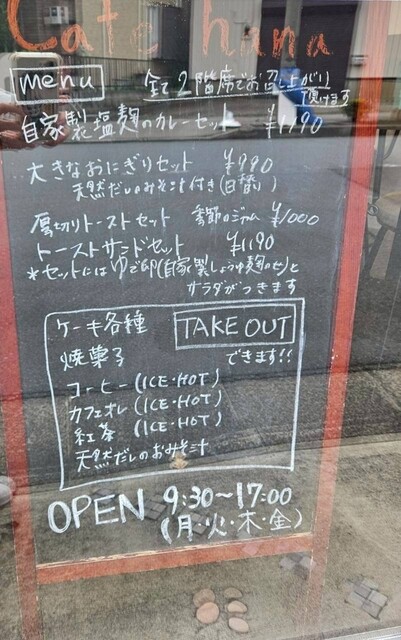 Cafe hana
menu 全て2階席でお召し上がり
頂けます
自家製塩麹のカレーセット ¥1190
大きなおにぎりセット ¥990
天然だしのみそ汁付き(日替り)
厚切りトーストセット 季節のジャム ¥1000
トーストサンドセット ¥1190
*セットにはゆで卵(自家製しょうゆ麹のせ)と
サラダがつきます
ケーキ各種 TAKE OUT
焼菓子 できます!!
コーヒー(ICE・HOT)
カフェオレ(ICE・HOT)
紅茶(ICE・HOT)
天然だしのおみそ汁
OPEN 9:30〜17:00
(月・火・木・金)